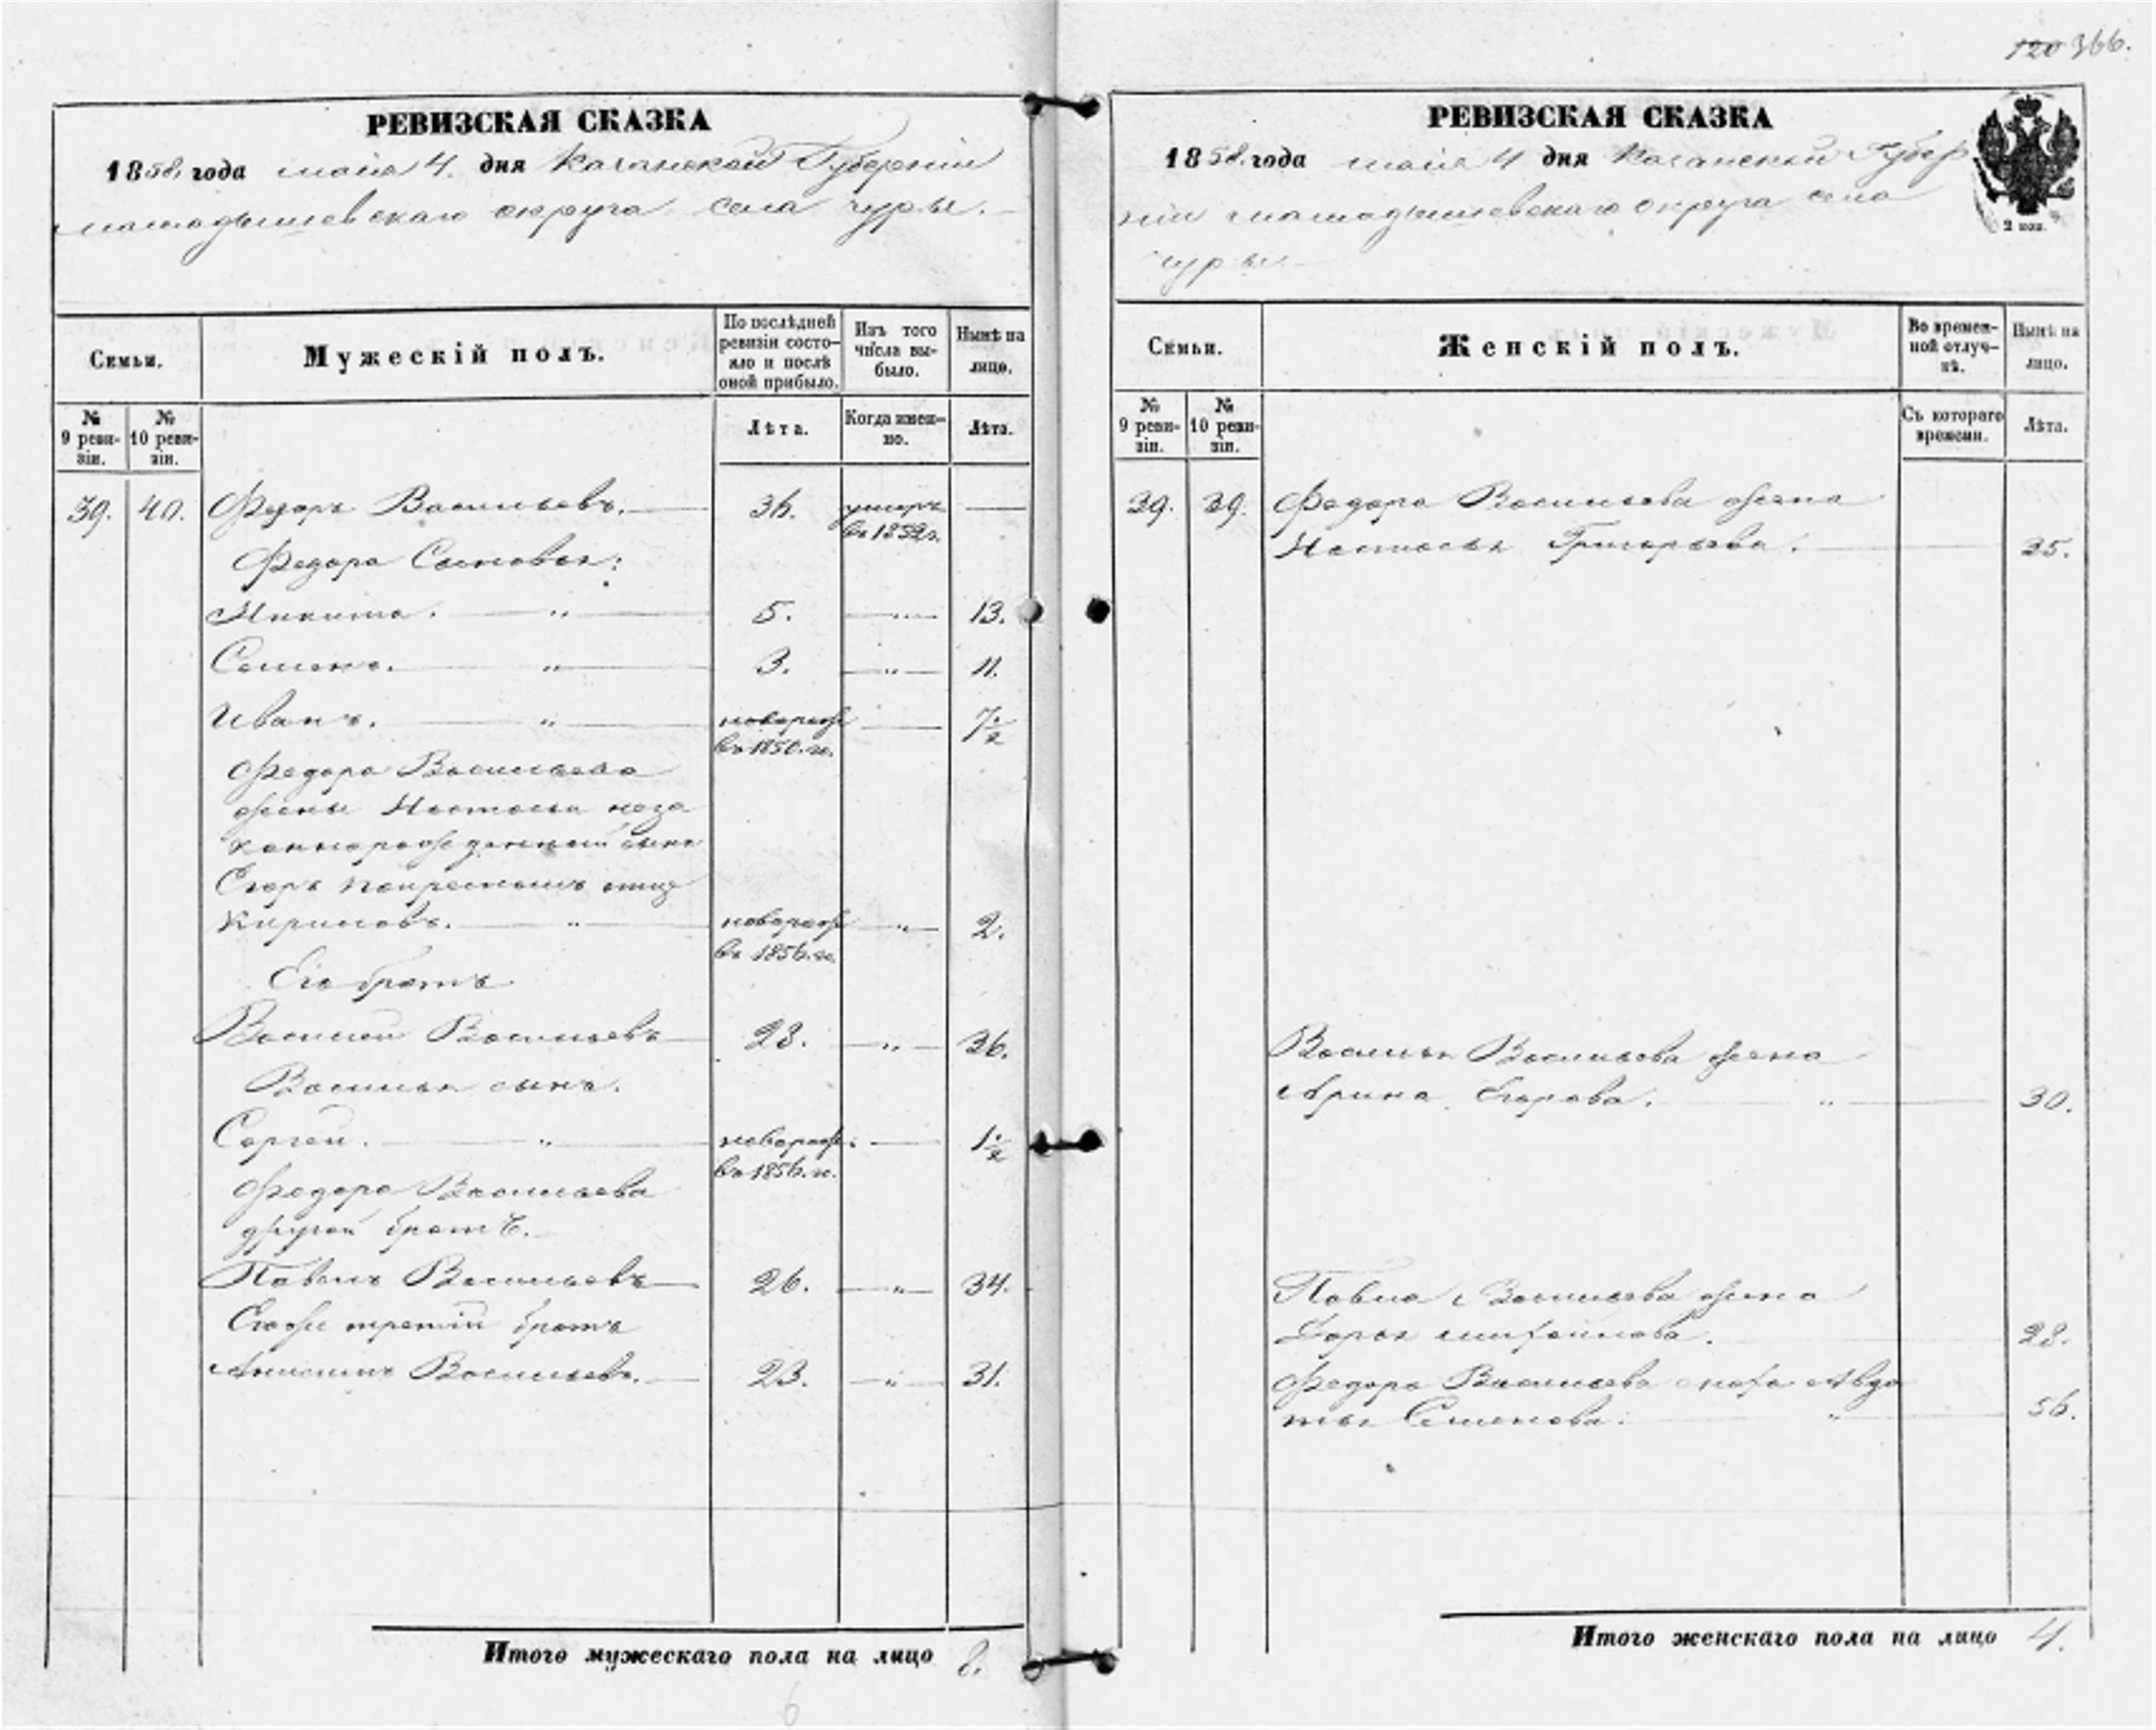 120 366.
РЕВИЗСКАЯ СКАЗКА
1858. года маія 4. дня Казанской Губерніи
мамадышевскаго округа села чуры.
Семьи.
Мужескій полъ.
По послѣдней ревизіи состо-
яло и послѣ
оной прибыло.
Изъ того
числа вы-
было.
Нынѣ на
лицо.
№
9 реви-
зіи.
№
10 реви-
зіи.
Лѣта.
Когда имен-
но.
Лѣта.
39. 40. Федоръ Васильевъ. 36. умеръ
въ 1852 г.
Федора Сыновья:
Никита. " 5. " 13.
Семенъ. " 3. " 11.
Иванъ. " новорож 7½
въ 1850. го.
Федора Васильева
жены Настасьи неза
коннорожденный сынъ
Егоръ покрестному отцу
Кириловъ. " новорож " 2.
въ 1856. го.
Его братъ
Василей Васильевъ 28. " 36.
Василья сынъ.
Сергей. " новорож. 1½
въ 1856. го.
Федора Васильева
другой братъ.
Павелъ Васильевъ 26. " 34.
Егоже третій братъ
Анисимъ Васильевъ. 23. " 31.
Итого мужескаго пола на лицо 8.
6
РЕВИЗСКАЯ СКАЗКА
1858. года маія 4 дня Казанской Губер
ніи мамадышевскаго округа села
чуры
2 коп.
Семьи.
Женскій полъ.
Во времен-
ной отлуч-
кѣ.
Нынѣ на
лицо.
№
9 реви-
зіи.
№
10 реви-
зіи.
Съ котораго
времени.
Лѣта.
39. 39. Федора Васильева жена
Настасья Григорьева. 35.
Василья Васильева жена
Арина Егорова. " 30.
Павла Васильева жена
Дарья михайлова. 28.
Федора Васильева Авдо
тья Семенова. " 56.
Итого женскаго пола на лицо 4.